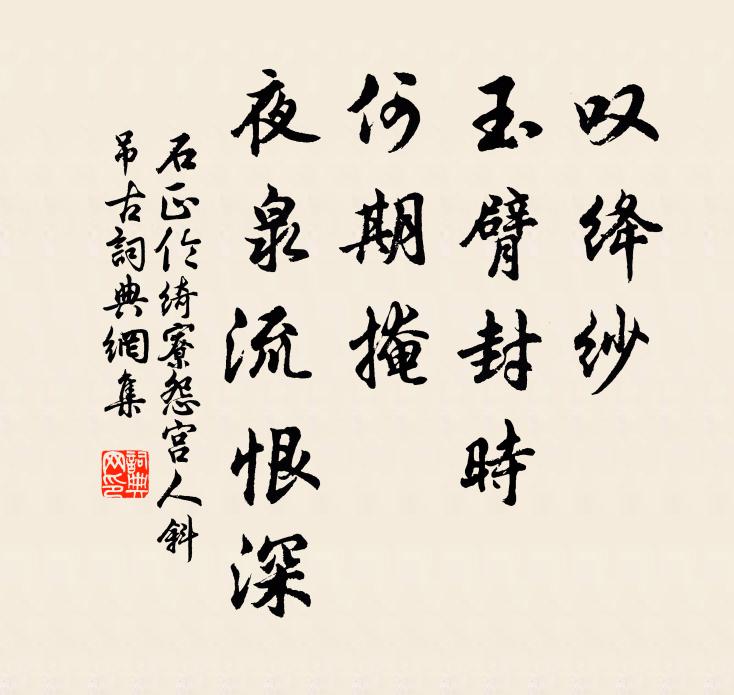 叹绛纱
玉臂封時
何期掩
夜泉流恨深
石正伦绮寮怨宫人斜
吊古詞典網集
詞典網印